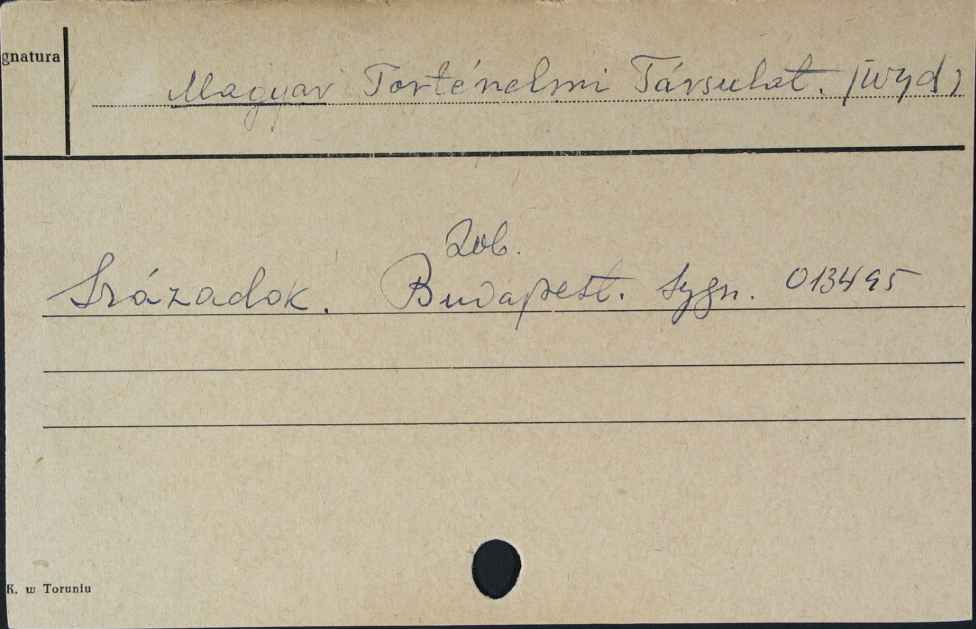 gnatura
Magyar Torténelmi Társulat. /wyd/
Zob.
Századok. Budapest. Sygn. 013495
K. w Toruniu